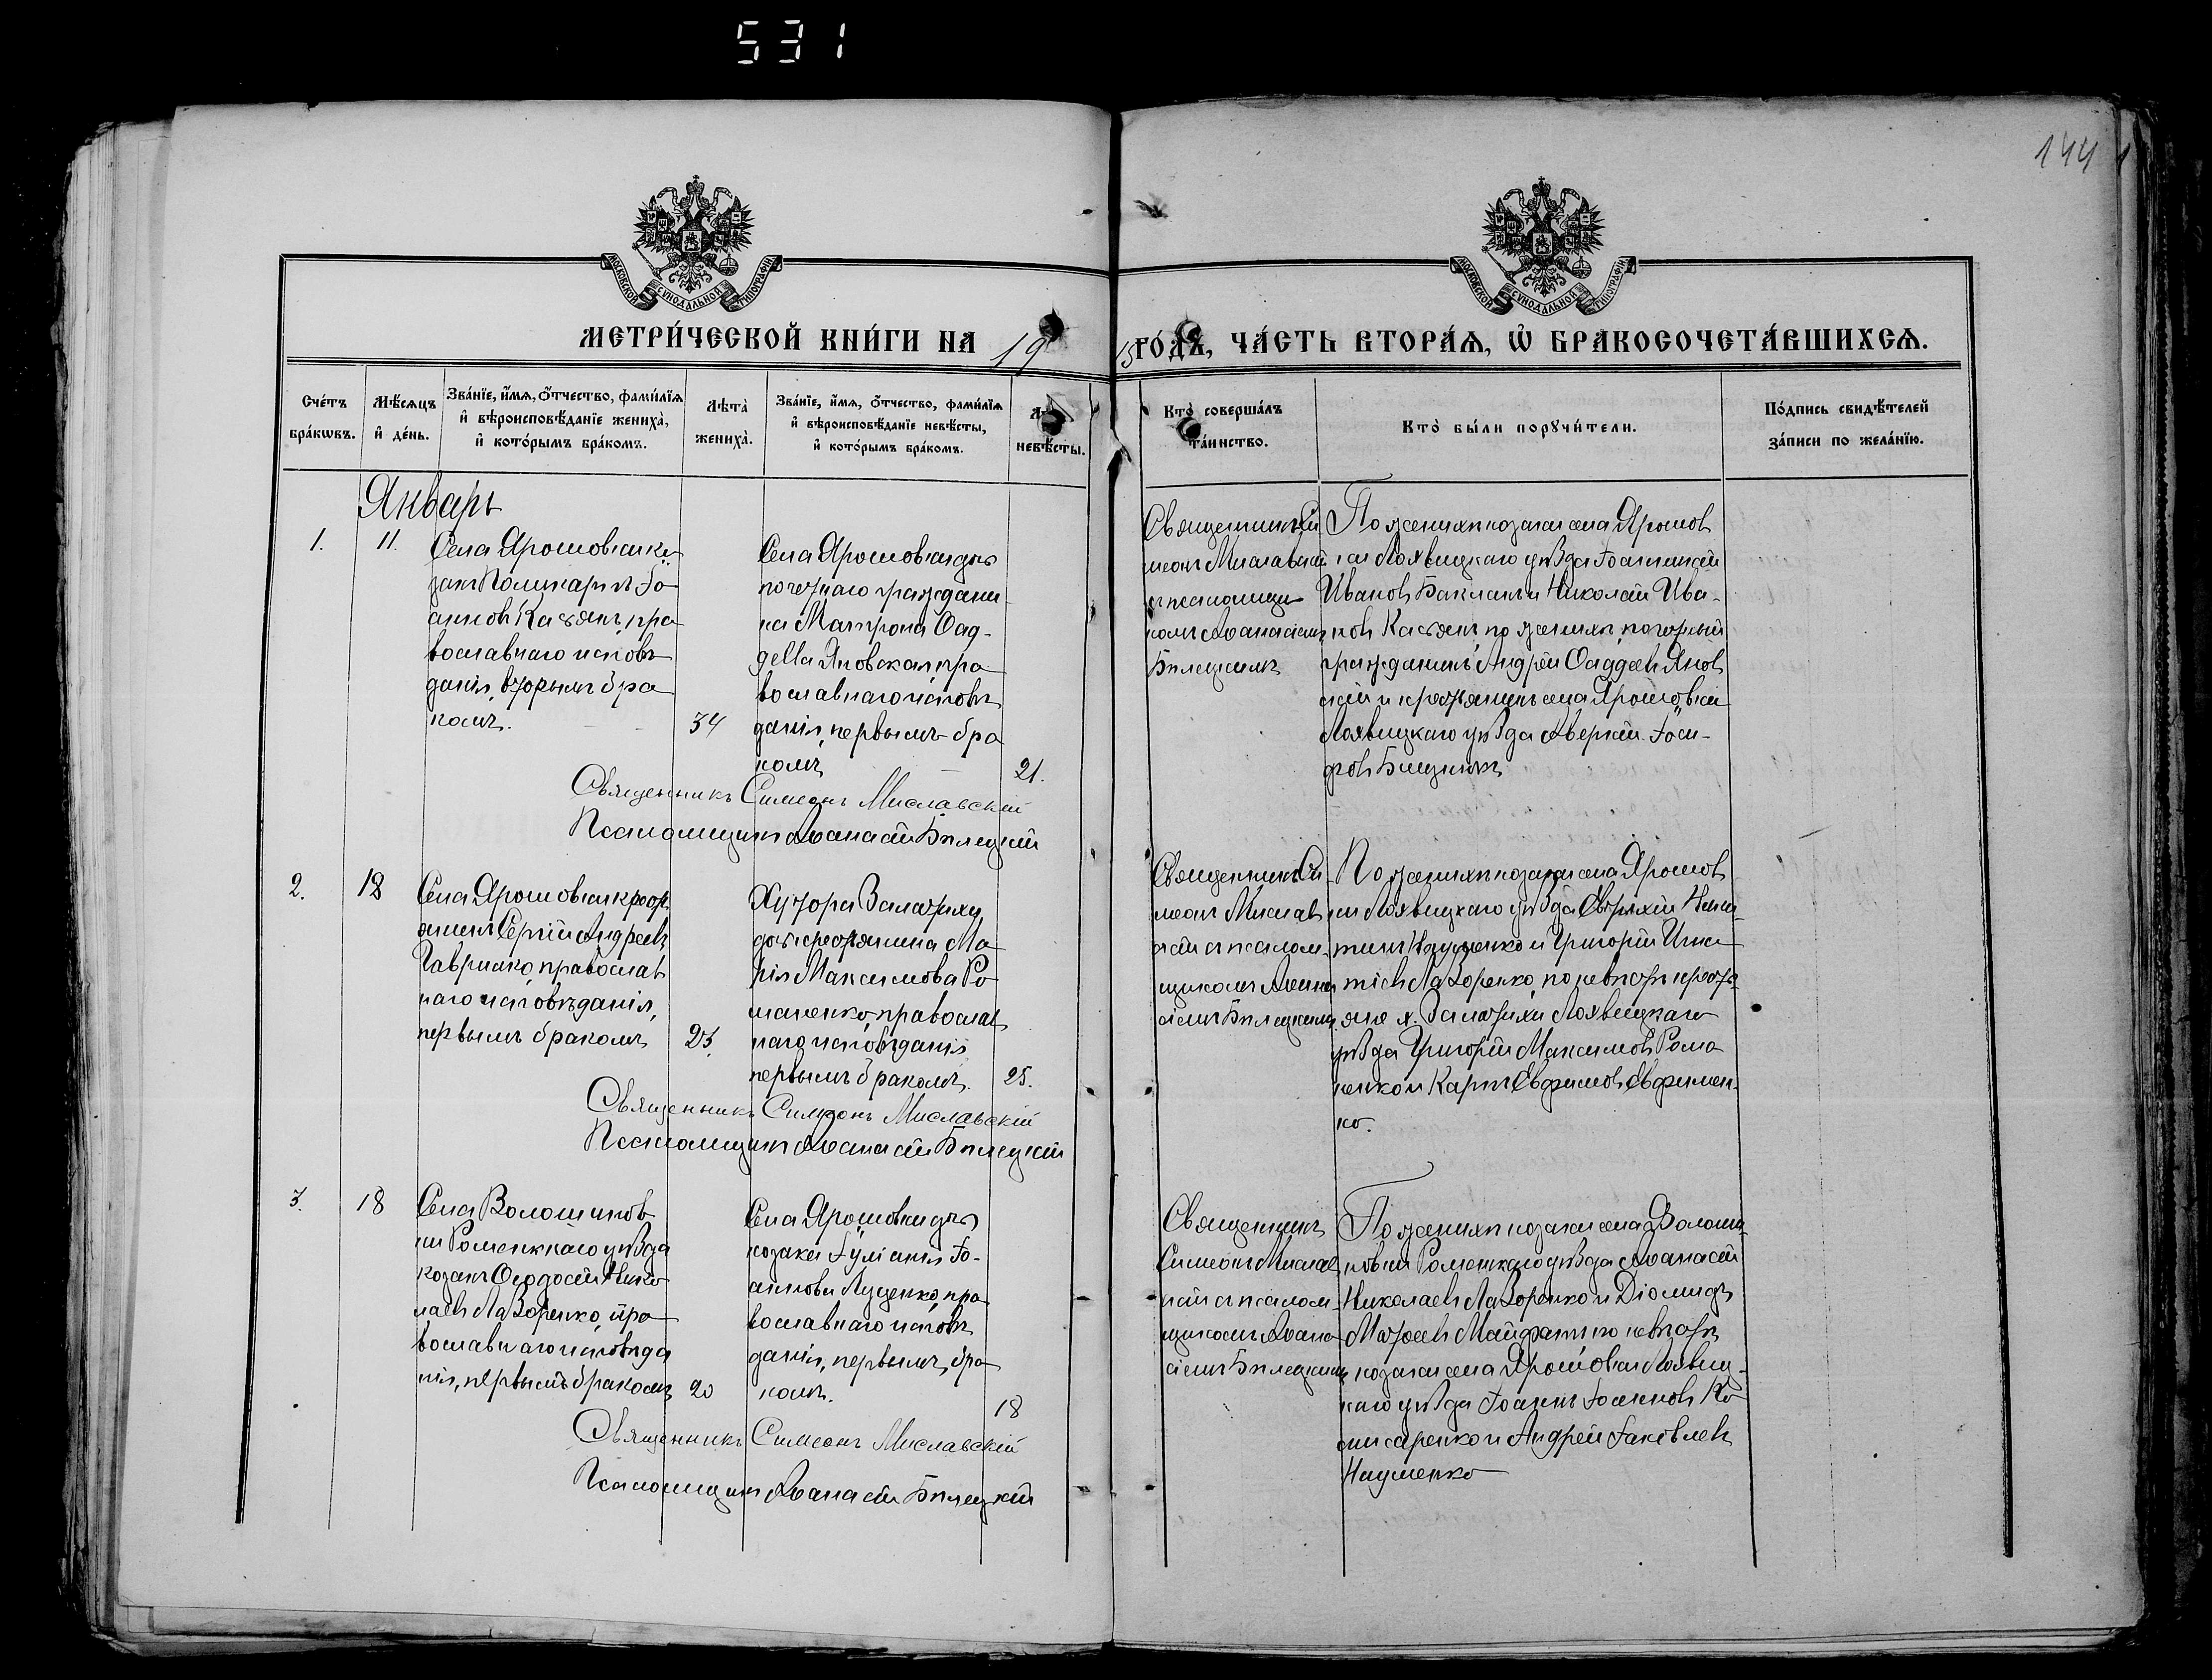 531
144
МОСКОВСКОЙ СѴНОДАЛЬНОЙ ТИПОГРАФІИ
МОСКОВСКОЙ СѴНОДАЛЬНОЙ ТИПОГРАФІИ
МЕТРИ́ЧЕСКОЙ КНИ́ГИ НА 19 15 ГО́ДЪ, ЧА́СТЬ ВТОРА́Ѧ, Ѡ҆ БРАКОСОЧЕТА́ВШИХСѦ.
Сче́тъ
бра́кѡвъ.
Мѣ́сѧцъ
и҆ де́нь.
Зва́нїе, и҆́мѧ, о҆́тчество, фами́лїѧ
и҆ вѣроисповѣ́данїе жениха̀,
и҆ кото́рымъ бра́комъ.
Лѣта̀
жениха̀.
Зва́нїе, и҆́мѧ, о҆́тчество, фами́лїѧ
и҆ вѣроисповѣ́данїе невѣ́сты,
и҆ кото́рымъ бра́комъ.
невѣ́сты.
Кто̀ соверша́лъ
та́инство.
Кто̀ бы́ли порꙋчи́тели.
По́дпись свидѣ́телей
за́писи по жела́нїю.
Январь
1.
11.
Села Ярошовки ко
закъ Поликарпъ Іо
анновъ Касьянъ, пра
вославнаго исповѣ
данія, вторымъ бра
комъ.
34
Села Ярошовки дчь
почетнаго граждани
на Матрона Ѳад-
деева Яновская, пра
вославнаго исповѣ
данія, первымъ бра
комъ
21.
Священникъ Си
меонъ Миславскій
съ псаломщи
комъ Аѳанасіемъ
Бѣлецкимъ
По женихѣ козаки села Ярошов
ки Лохвицкаго уѣзда Іоанникій
Ивановъ Бакланъ и Николай Ива-
новъ Касьянъ, по женихѣ, почетный
гражданинъ Андрей Ѳаддеевъ Янов
скій и крестьянинъ села Ярошовки
Лохвицкаго уѣзда Аверкій Іоси-
фовъ
Священникъ Симеонъ Миславскій
Псаломщикъ Аѳанасій Бѣлецкій
2.
18
Села Ярошовки кресть
янинъ Сергій Андреевъ
Гаврилко, православ
наго исповѣданія,
первымъ бракомъ
25.
Хутора Залатихи
дочь крестьянина Ма
рія Максимова Ро
маненко, православ
наго исповѣданія
первымъ бракомъ.
25.
Священникъ Си
меонъ Мислав
скій съ псалом-
щикомъ Аѳана
сіемъ Бѣлецкимъ
По женихѣ козаки села Ярошов
ки Лохвицкаго уѣзда Евтихій
Науменко и Григорій Игна
тіевъ Лазоренко, по невѣстѣ кресть-
яне х. Залатихи Лохвицкаго
уѣзда Григорій Максимовъ Рома
ненко и Карпъ Евфимовъ Евфимен-
ко.
Священникъ Симеонъ Миславскій
Псаломщикъ Аѳанасій Бѣлецкій
3.
18
Села Волошинов
ки Роменскаго уѣзда
козакъ Ѳеодосій Нико
лаевъ Лазоренко, пра
вославнаго исповѣда
нія, первымъ бракомъ
20
Села Ярошовки дчь
козака Іуліанія Іо-
аннова Луценко, пра
вославнаго исповѣ
данія, первымъ бра
комъ.
18
Священникъ
Симеонъ Мислав
скій съ псалом-
щикомъ Аѳана
сіемъ Бѣлецкимъ
По женихѣ козаки села Волоши-
новки Роменскаго уѣзда Аѳанасій
Николаевъ Лазоренко и Діомидъ
по невѣстѣ
козаки села Ярошовки Лохвиц-
каго уѣзда Іоаннъ Іоанновъ Ко
мисаренко и Андрей Іаковлевъ
Науменко
Священникъ Симеонъ Миславскій
Псаломщикъ Аѳанасій Бѣлецкій